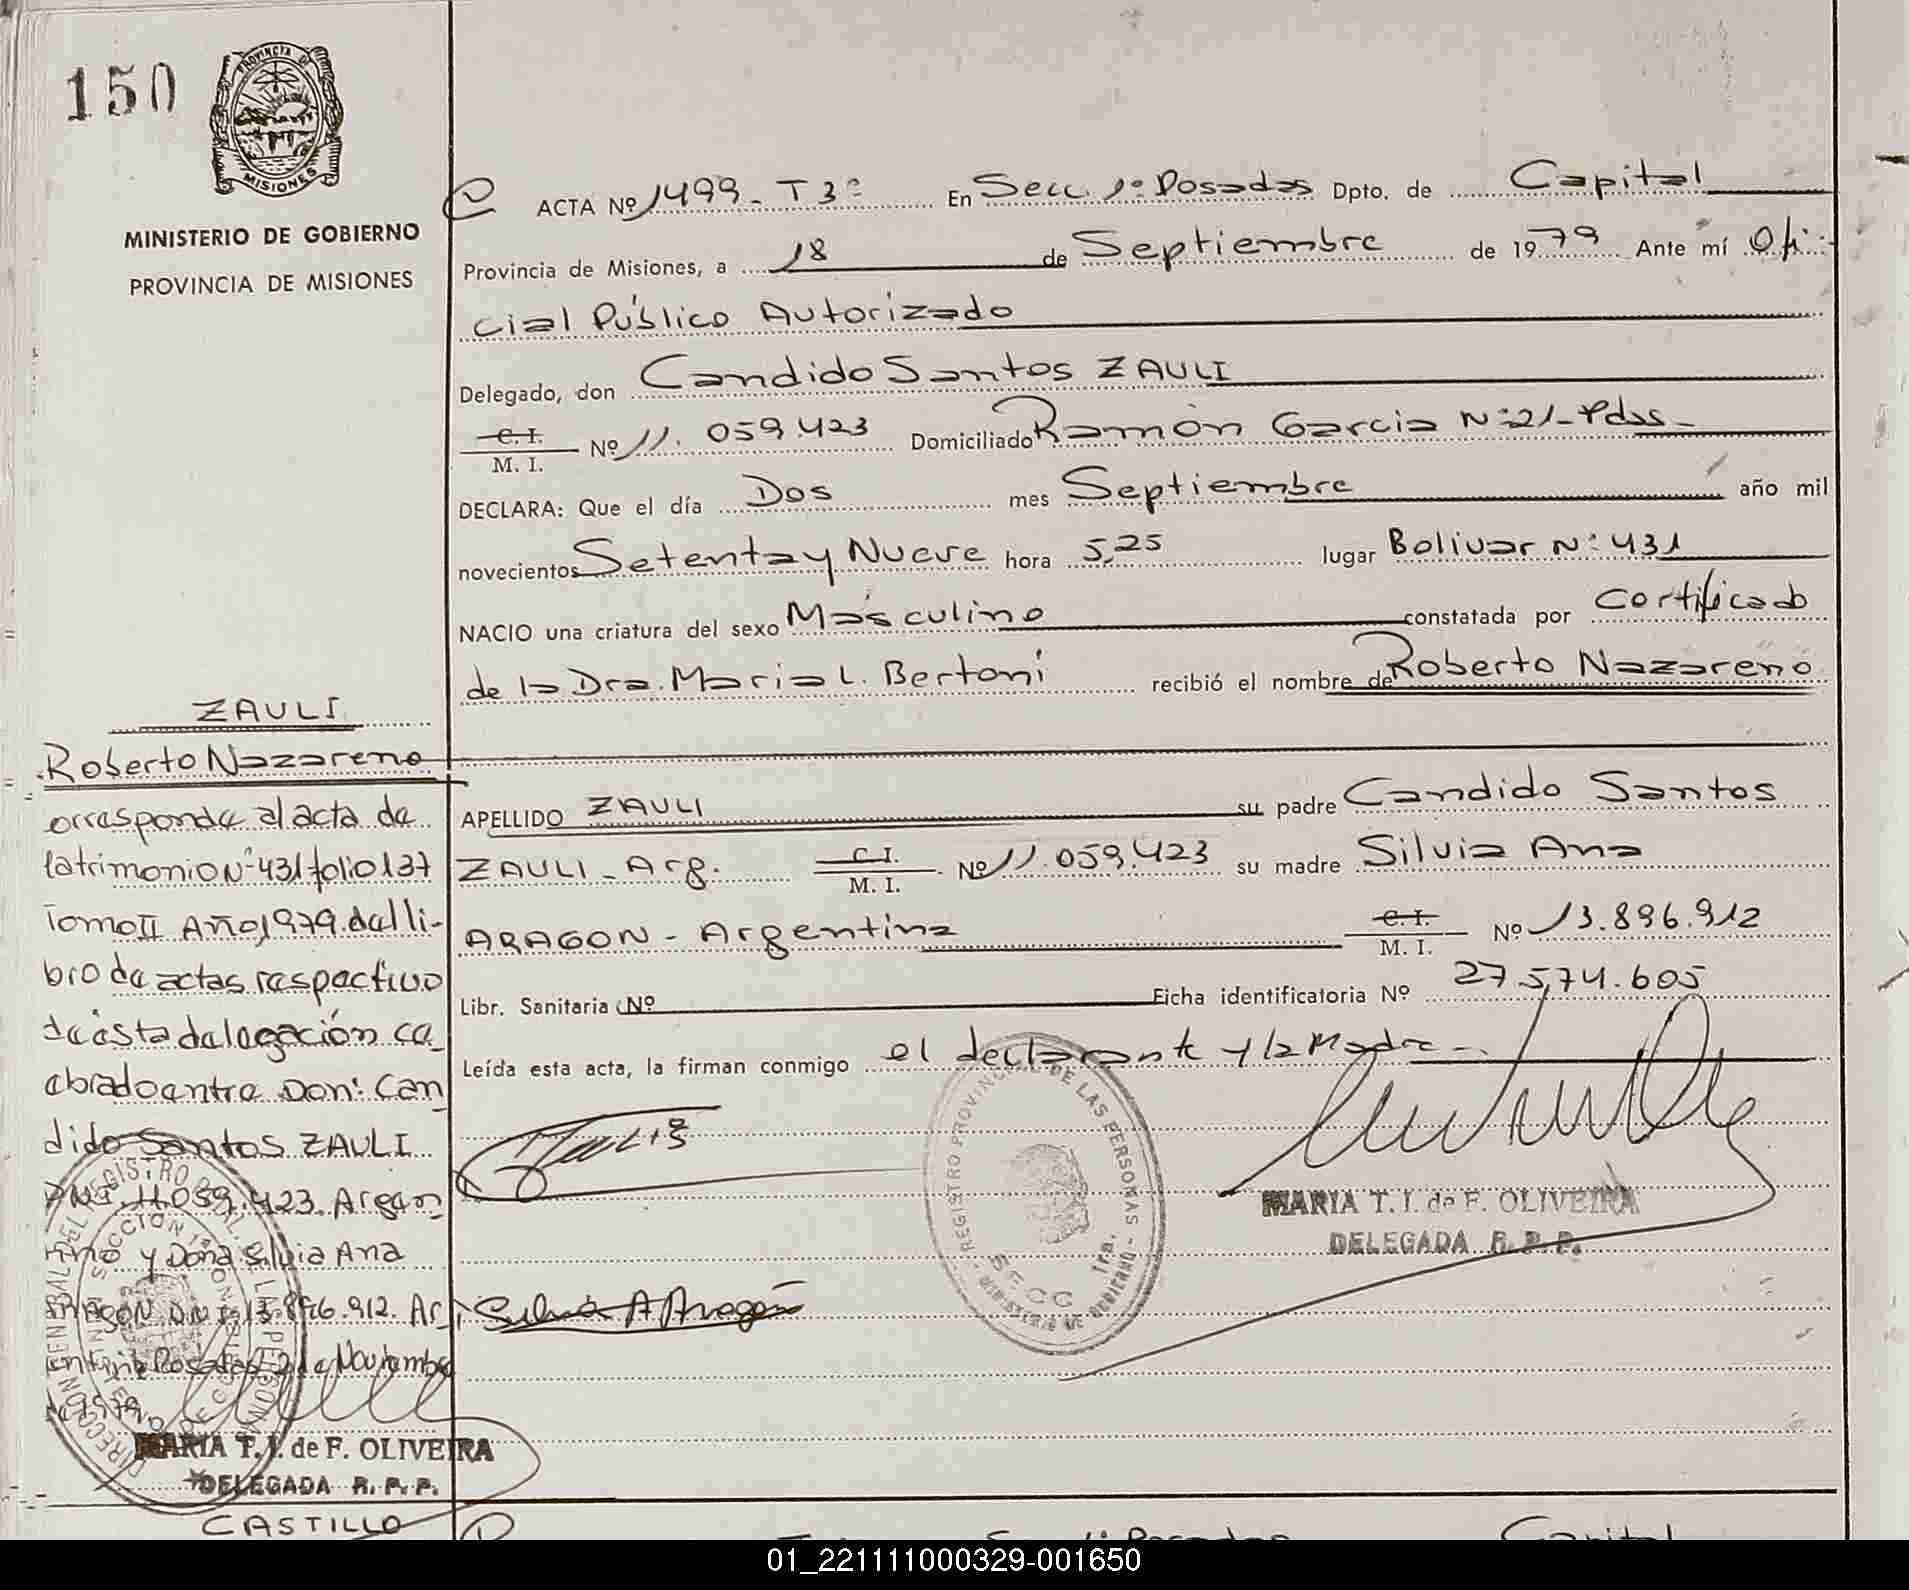 150
PROVINCIA DE
MISIONES
MINISTERIO DE GOBIERNO
PROVINCIA DE MISIONES
ACTA Nº 1499 - T 3º En Secc. 1º Posadas Dpto. de Capital
Provincia de Misiones, a 18 de Septiembre de 1979 Ante mí Ofi-
cial Público Autorizado
Delegado, don Candido Santos ZAULI
C. I. / M. I. Nº 11.059.423 Domiciliado Ramón Garcia Nº 21 - Pdas -
DECLARA: Que el día Dos mes Septiembre año mil
novecientos Setenta y Nueve hora 5,25 lugar Bolivar Nº 431
NACIO una criatura del sexo Másculino constatada por Certificado
de la Dra. Maria L. Bertoni recibió el nombre de Roberto Nazareno
APELLIDO ZAULI su padre Candido Santos
ZAULI - Arg. C. I. / M. I. Nº 11.059.423 su madre Silvia Ana
ARAGON - Argentina C. I. / M. I. Nº 13.896.912
Libr. Sanitaria Nº Ficha identificatoria Nº 27.574.605
Leída esta acta, la firman conmigo el declarante y la Madre -
Silvia A Aragon
REGISTRO PROVINCIAL DE LAS PERSONAS
SECC 1ra.
MINISTERIO DE GOBIERNO
MARIA T. I. de F. OLIVEIRA
DELEGADA R. P. P.
ZAULI
Roberto Nazareno
orresponde al acta de
latrimonio Nº 431 folio 137
Tomo II Año 1979 del li-
bro de actas respectivo
de esta delegación ce
ebrado entre Don: Can
dido Santos ZAULI
DNI. 11.059.423. Argen
tino y Doña Silvia Ana
ARAGON DNI 13.896.912. Ar
entina Posadas 2 de Noviembre
de 1979
MARIA T. I. de F. OLIVEIRA
DELEGADA R. P. P.
CASTILLO
Posadas Capital
01_221111000329-001650